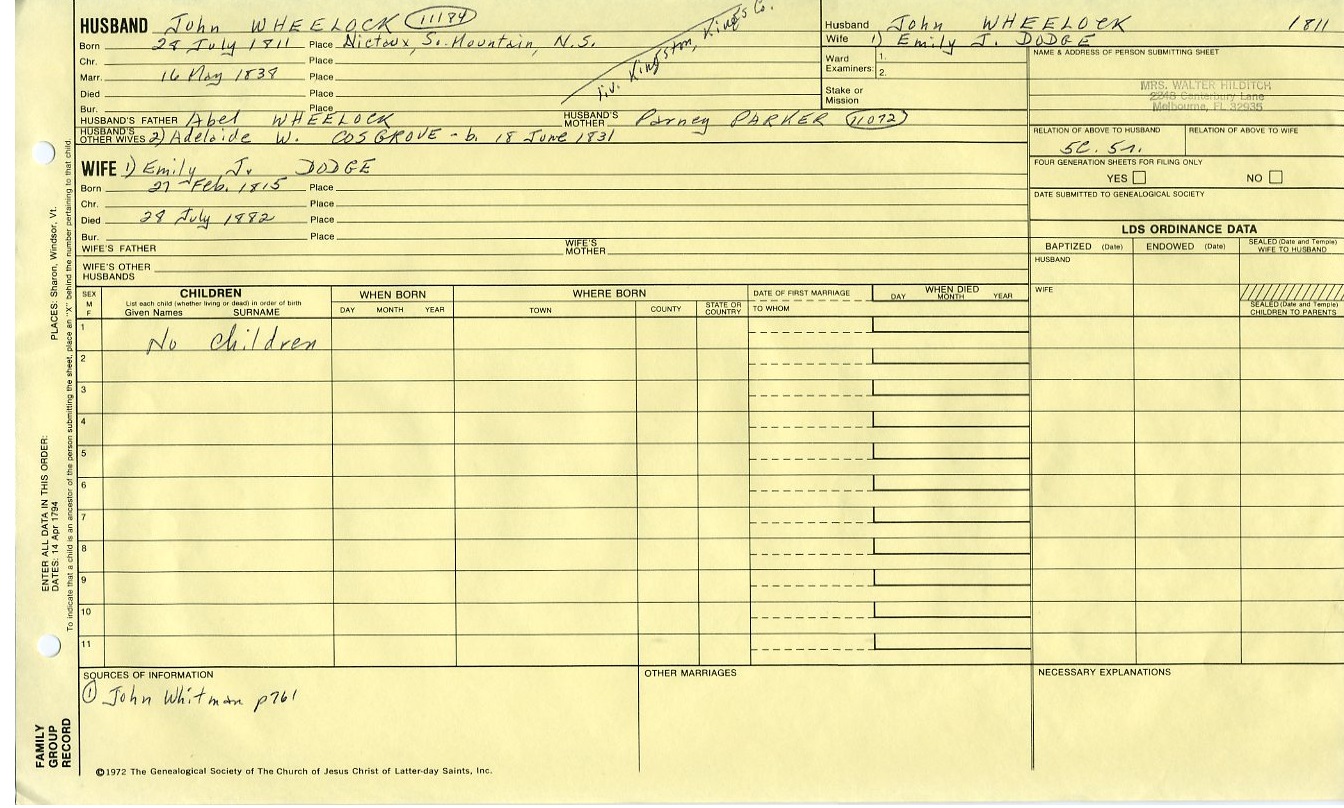 HUSBAND John WHEELOCK 11184
Born 28 July 1811 Place Nictaux, So. Mountain, N.S.
liv. Kingston, Kings Co.
Chr. Place
Marr. 16 May 1838 Place
Died Place
Bur. Place
HUSBAND'S FATHER Abel WHEELOCK HUSBAND'S MOTHER Parney PARKER 11072
HUSBAND'S OTHER WIVES 2) Adelaide W. COSGROVE - b. 18 June 1831
WIFE 1) Emily J. DODGE
Born 27 Feb. 1815 Place
Chr. Place
Died 28 July 1882 Place
Bur. Place
WIFE'S FATHER WIFE'S MOTHER
WIFE'S OTHER HUSBANDS
Husband John WHEELOCK 1811
Wife 1) Emily J. DODGE
Ward Examiners: 1.
2.
Stake or Mission
NAME & ADDRESS OF PERSON SUBMITTING SHEET
MRS. WALTER HILDITCH
2248 Canterbury Lane
Melbourne, FL 32935
RELATION OF ABOVE TO HUSBAND RELATION OF ABOVE TO WIFE
5C. 5r.
FOUR GENERATION SHEETS FOR FILING ONLY
YES NO
DATE SUBMITTED TO GENEALOGICAL SOCIETY
LDS ORDINANCE DATA
BAPTIZED (Date) ENDOWED (Date) SEALED (Date and Temple) WIFE TO HUSBAND
HUSBAND
WIFE
SEALED (Date and Temple) CHILDREN TO PARENTS
SEX M F
CHILDREN
List each child (whether living or dead) in order of birth
Given Names SURNAME
WHEN BORN
DAY MONTH YEAR
WHERE BORN
TOWN COUNTY STATE OR COUNTRY
DATE OF FIRST MARRIAGE
TO WHOM
WHEN DIED
DAY MONTH YEAR
1 No children
2
3
4
5
6
7
8
9
10
11
SOURCES OF INFORMATION
① John Whitman p761
OTHER MARRIAGES
NECESSARY EXPLANATIONS
©1972 The Genealogical Society of The Church of Jesus Christ of Latter-day Saints, Inc.
FAMILY GROUP RECORD
ENTER ALL DATA IN THIS ORDER:
DATES: 14 Apr 1794 PLACES: Sharon, Windsor, Vt.
To indicate that a child is an ancestor of the person submitting the sheet, place an "X" behind the number pertaining to that child.